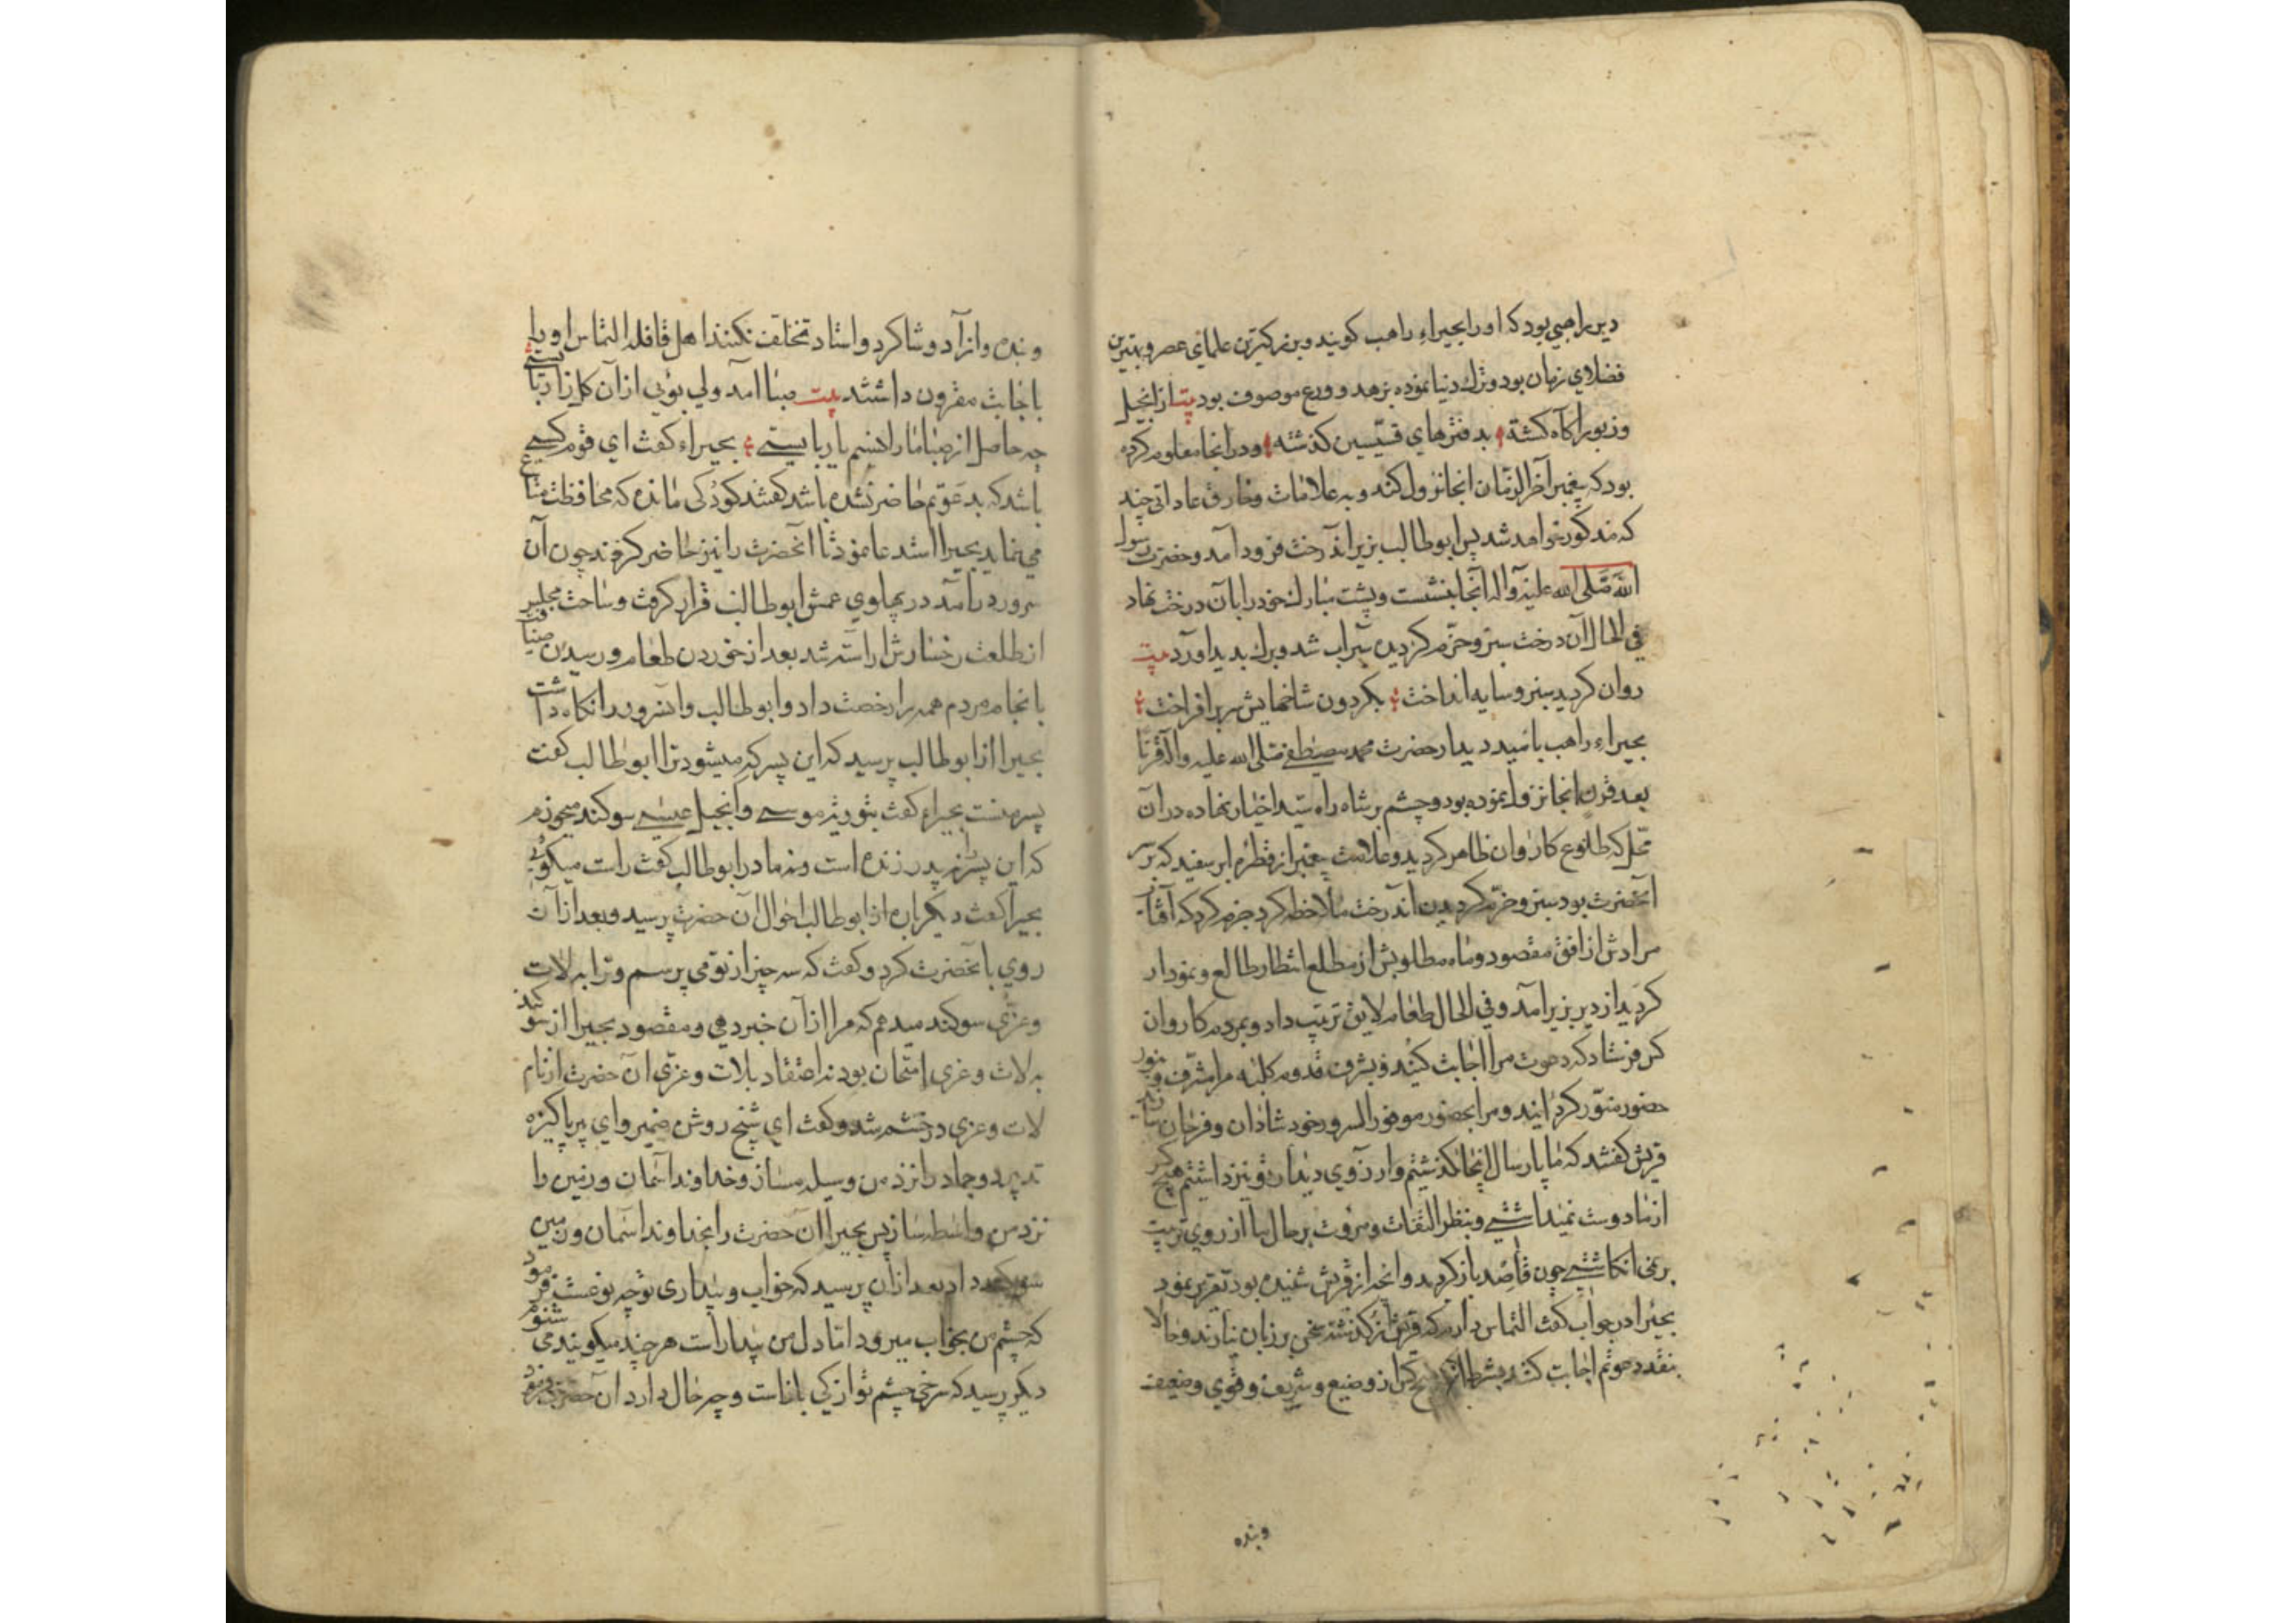 دیر راهبی بود که او را بحیراء راهب کویند وبزرکترین علمای عصر وبهترین
فضلای زمان بود وترك دنیا نموده بزهد و ورع موصوف بود بیت از انجیل
وزبور آکاه کشته بدفترهای قسیسین کذشته ودر انجا معلوم کرده
بود که پیغمبر آخر الزمان انجا نزول کند و به علامات وخارق عاداتی چند
که مذکور خواهد شد پس ابوطالب بزیر اندرخت فرود آمد وحضرت رسول
الله صلی الله علیه وآله آنجا بنشست وپشت مبارك خود را بآن درخت نهاد
فی الحال آن درخت سبز وخرم کردید سیراب شد وبرك بدید آورد بیت
روان کردید سبز وسایه انداخت بکردون شاخهایش سر بر افراخت
بحیراء راهب بامید دیدار حضرت محمد مصطفی صلی الله علیه وآله قرنا
بعد قرن انجا نزول نموده بود وچشم بر شاه راه سید اخیار نهاده در آن
محل که طلوع کاروان ظاهر کردید وعلامت پیغمبر از قطره ابر سفید که بر سر
آنحضرت بود سبز وخرم کردیدن آندرخت ملاحظه کرد جزم کرد که آفتاب
مرادش از افق مقصود وماه مطلوبش از مطلع انتظار طالع ونمودار
کردید از دیر بزیر آمد وفی الحال طعام لایق ترتیب داد وبمردم کاروان
کس فرستاد که دعوت مرا اجابت کنید وبشرف قدوم کلبه مرا مشرف وبنور
حضور منور کردانید ومرا بحضور موفور السرور خود شادان وفرحان سازید
قریش کفتند که ما پارسال اینجا کذشتیم وارزوی دیدار تو نیز داشتیم هیچ کس
از ما دوست نمیداشتی وبنظر التفات ومروت بر حال ما از روی تربیت
بر نمی انکاشتی چون قاصد باز کردید وانچه از قریش شنیده بود تقریر نمود
بحیرا در جواب کفت التماس دارم که قریش از کذشته سخن بر زبان نیارند وحالا
بنقد دعوتم اجابت کنند بشرط آنکه هیچ کس از وضیع وشریف وقوی وضعیف
وبنده
وبنده وازآد وشاکرد واستاد تخلف نکنند اهل قافله التماس او را
باجابت مقرون داشتند بیت صبا آمد ولی بوئی از آن کلزار بایستی
چه حاصل از صبا ما را نسیم یار بایستی بحیراء کفت ای قوم کسی
باشد که بدعوتم حاضر نشده باشد کفتند کودکی مانده که محافظت متاع
می نماید بحیرا استدعا نمود تا آنحضرت را نیز حاضر کرفند چون آن
سرور درآمد در پهلوی عمش ابوطالب قرار کرفت وساحت مجلس
از طلعت رخسارش آراسته شد بعد از خوردن طعام ورسیدن ضیافت
بانجام مردم همه را رخصت داد وابوطالب وآنسرور را نکاه داشت
بحیرا از ابوطالب پرسید که این پسر که میشود ترا ابوطالب کفت
پسر منست بحیراء کفت بتوریة موسی وانجیل عیسی سوکند میخورم
که این پسر را نه پدر زنده است ونه مادر ابوطالب کفت راست میکوئی
بحیرا کفت دیکر باره از ابوطالب احوال آن حضرت پرسید وبعد از آن
روی بانحضرت کرد وکفت که سه چیز از تو می پرسم وترا به لات
وعزی سوکند میدهم که مرا از آن خبر دهی ومقصود بحیرا از سوکند
به لات وعزی امتحان بود نه اعتقاد بلات وعزی آن حضرت از نام
لات وعزی در خشم شد وکفت ای شیخ روشن ضمیر وای پیر پاکیزه
تدبیر دو جماد را نزد من وسیله مساز وخداوند آسمان وزمین را
نزد من واسطه ساز پس بحیرا آن حضرت را بخداوند آسمان وزمین
سوکند داد بعد از آن پرسید که خواب وبیداری تو چه نوعست فرمود
که چشم من بخواب میرود اما دل من بیدار است هر چند میکویند می شنوم
دیکر پرسید که سرخی چشم تو از کی باناست وچه حال دارد آن حضرت فرمود